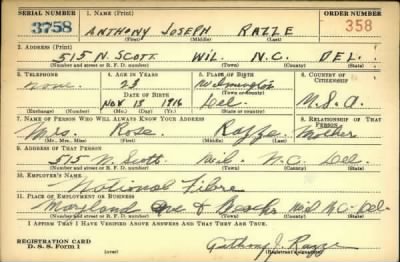 SERIAL NUMBER 1. NAME (Print) ORDER NUMBER
3758 ANTHONY JOSEPH RAZZE 358
(First) (Middle) (Last)
2. ADDRESS (Print)
515 N. SCOTT. WIL. N.C. DEL.
(Number and street or R. F. D. number) (Town) (County) (State)
3. TELEPHONE 4. AGE IN YEARS 5. PLACE OF BIRTH 6. COUNTRY OF CITIZENSHIP
none 23 Wilmington
DATE OF BIRTH (Town or county)
Nov 15 1916 Del. U.S.A.
(Exchange) (Number) (Mo.) (Day) (Yr.) (State or country)
7. NAME OF PERSON WHO WILL ALWAYS KNOW YOUR ADDRESS 8. RELATIONSHIP OF THAT PERSON
Mrs. Rose Razze Mother
(Mr., Mrs., Miss) (First) (Middle) (Last)
9. ADDRESS OF THAT PERSON
515 N. Scott Wil. N.C. Del.
(Number and street or R. F. D. number) (Town) (County) (State)
10. EMPLOYER'S NAME
National Fibre
11. PLACE OF EMPLOYMENT OR BUSINESS
Maryland Ave & Wil N.C. Del.
(Number and street or R. F. D. number) (Town) (County) (State)
I AFFIRM THAT I HAVE VERIFIED ABOVE ANSWERS AND THAT THEY ARE TRUE.
REGISTRATION CARD
D. S. S. Form 1 (over) Anthony J. Razze